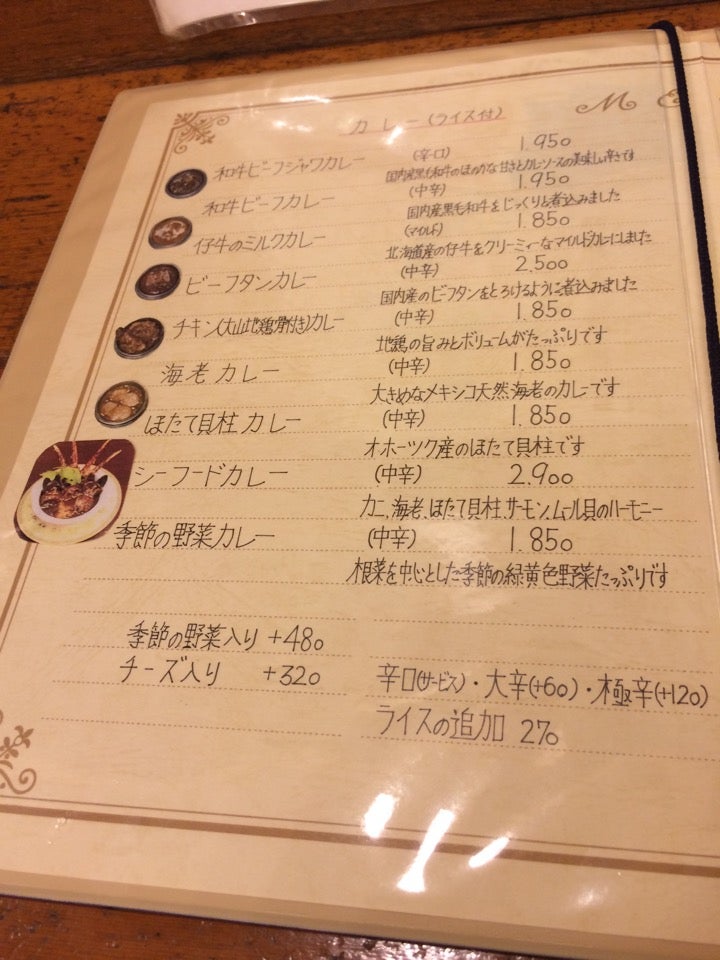 M
カレー(ライス付)
和牛ビーフジャワカレー (辛口) 1.950
国内産黒毛和牛のほのかな甘さとカレーソースの美味しい辛さです
和牛ビーフカレー (中辛) 1.950
国内産黒毛和牛をじっくりと煮込みました
仔牛のミルクカレー (マイルド) 1.850
北海道産の仔牛をクリーミィーなマイルドカレーにしました
ビーフタンカレー (中辛) 2.500
国内産のビーフタンをとろけるように煮込みました
チキン(大山地鶏骨付き)カレー (中辛) 1.850
地鶏の旨みとボリュームがたっぷりです
海老カレー (中辛) 1.850
大きめなメキシコ天然海老のカレーです
ほたて貝柱カレー (中辛) 1.850
オホーツク産のほたて貝柱です
シーフードカレー (中辛) 2.900
カニ、海老、ほたて貝柱、サーモン、ムール貝のハーモニー
季節の野菜カレー (中辛) 1.850
根菜を中心とした季節の緑黄色野菜たっぷりです
季節の野菜入り +480
チーズ入り +320
辛口(サービス)・大辛(+60)・極辛(+120)
ライスの追加 270